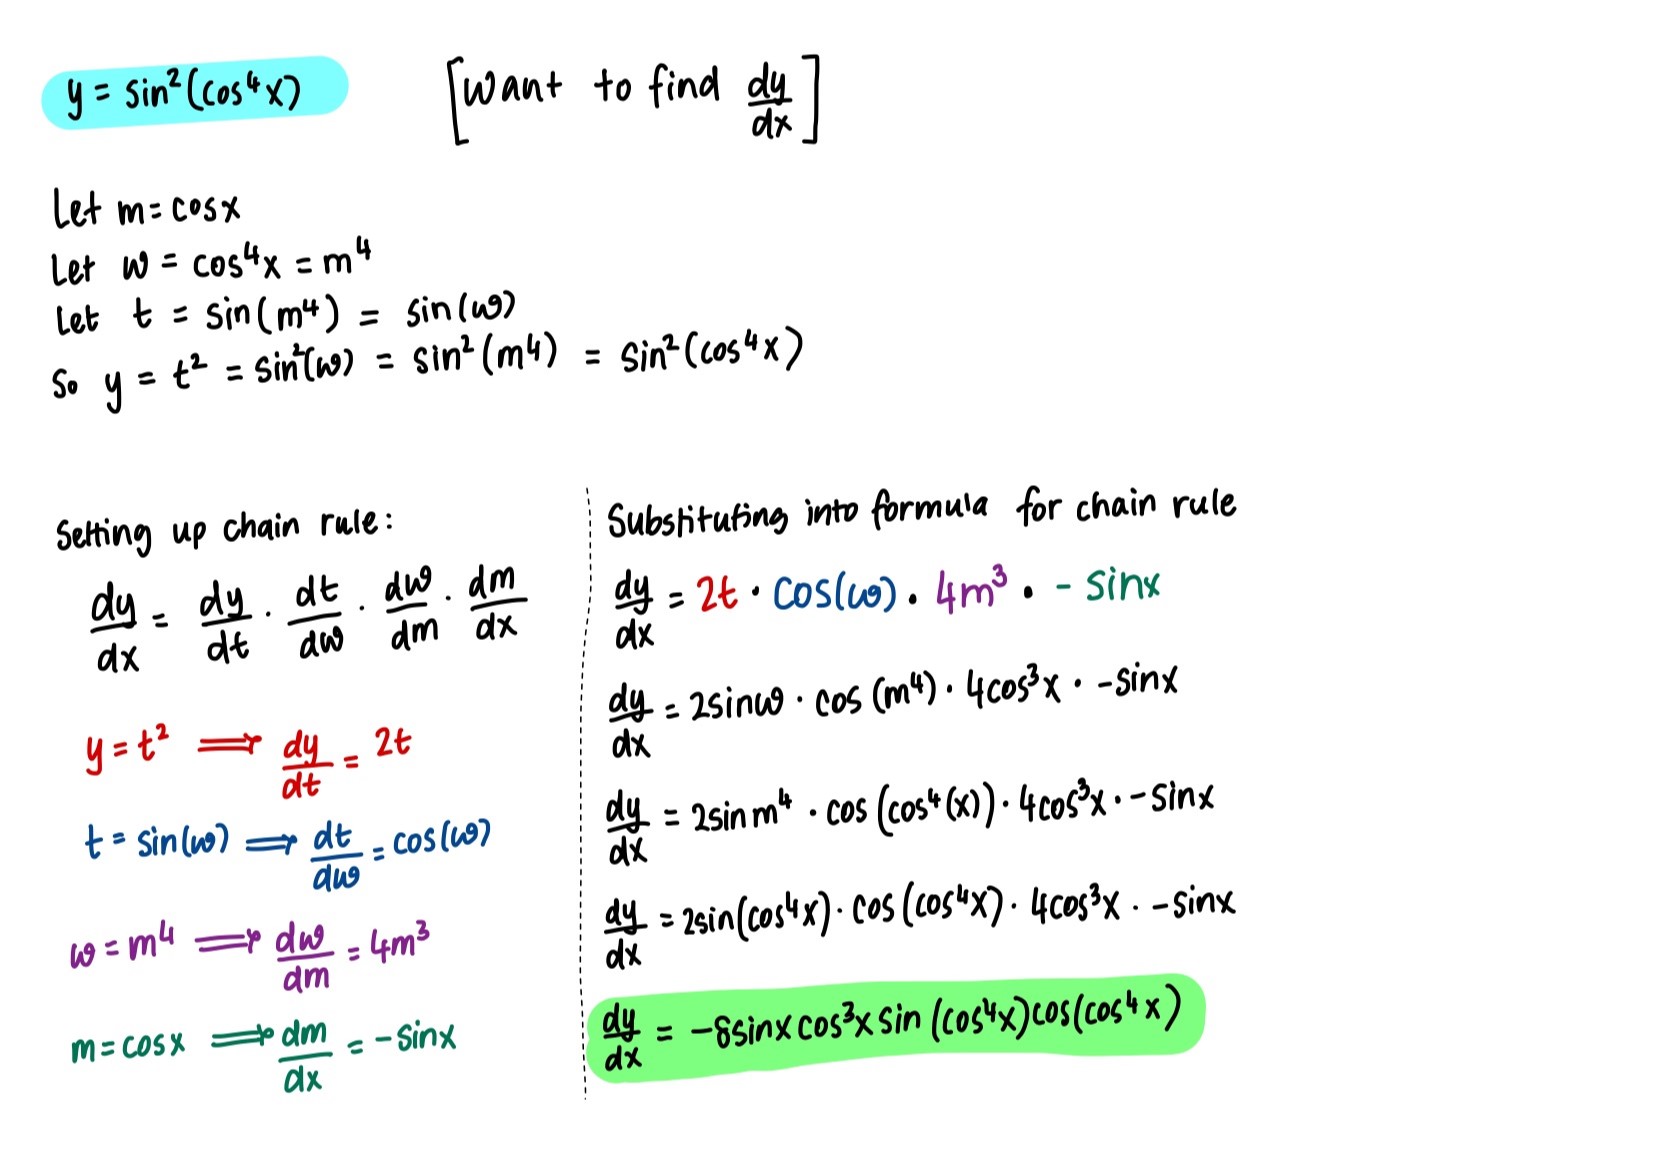 y = sin²(cos⁴x) [Want to find dy/dx]
Let m = cosx
Let w = cos⁴x = m⁴
Let t = sin(m⁴) = sin(w)
So y = t² = sin²(w) = sin²(m⁴) = sin²(cos⁴x)
Setting up chain rule:
dy/dx = dy/dt · dt/dw · dw/dm · dm/dx
y = t² ⟹ dy/dt = 2t
t = sin(w) ⟹ dt/dw = cos(w)
w = m⁴ ⟹ dw/dm = 4m³
m = cosx ⟹ dm/dx = -sinx
Substituting into formula for chain rule
dy/dx = 2t · cos(w) · 4m³ · -sinx
dy/dx = 2sinw · cos(m⁴) · 4cos³x · -sinx
dy/dx = 2sinm⁴ · cos(cos⁴(x)) · 4cos³x · -sinx
dy/dx = 2sin(cos⁴x) · cos(cos⁴x) · 4cos³x · -sinx
dy/dx = -8sinxcos³xsin(cos⁴x)cos(cos⁴x)